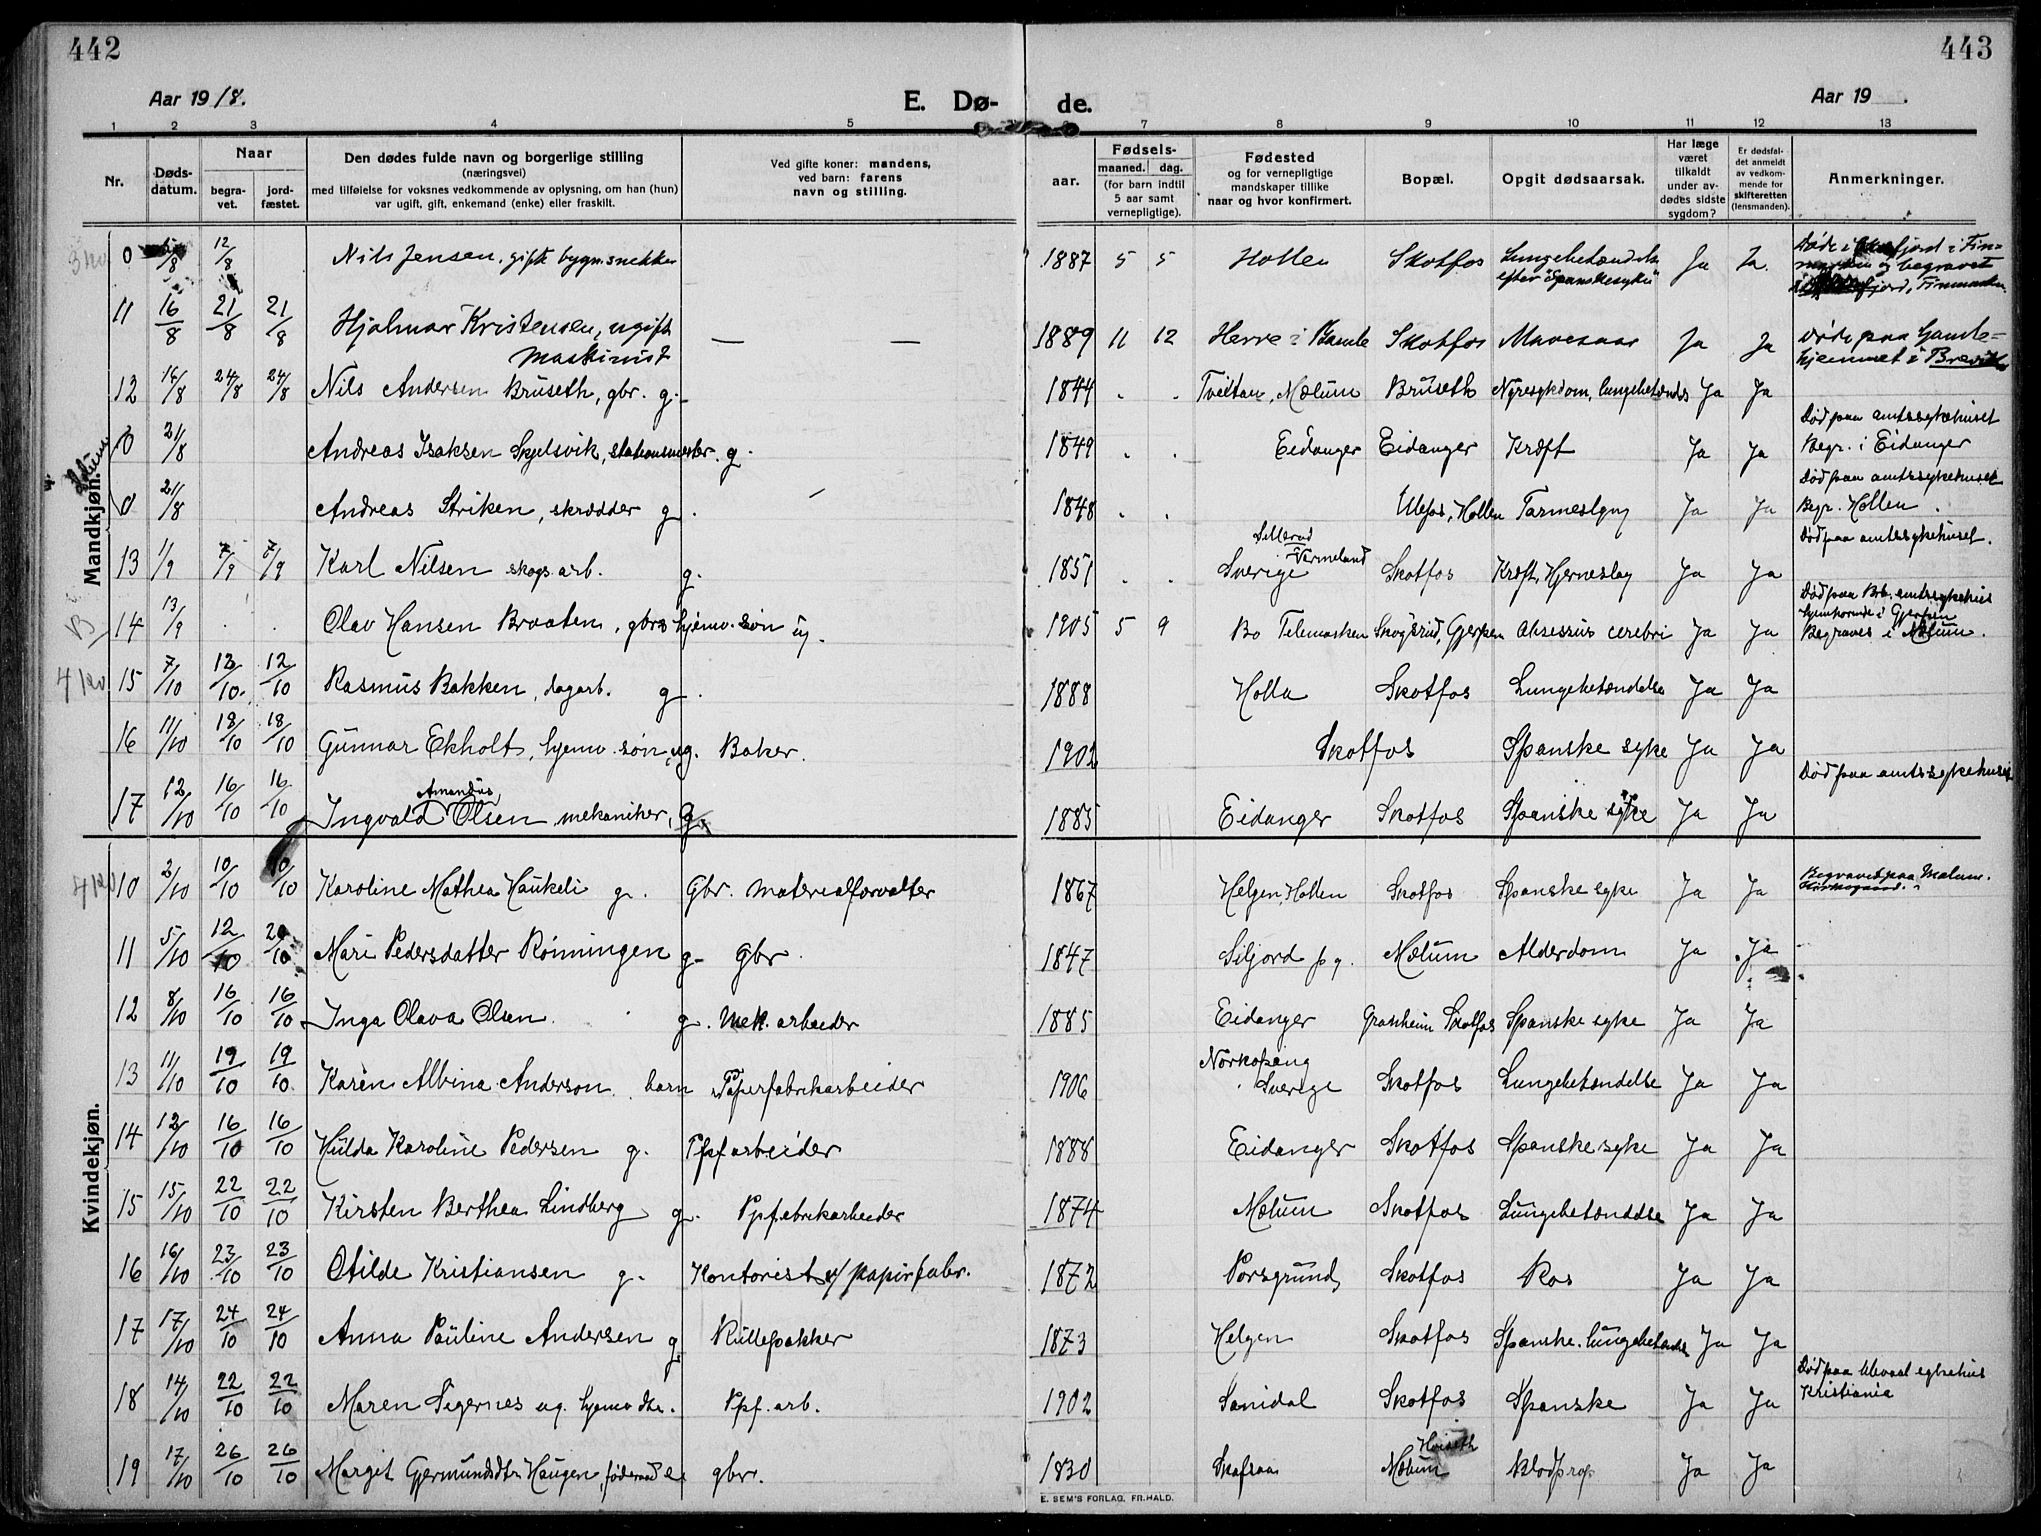 442
443
Aar 1918.
E. Dø-
de.
Aar 19 .
1 2 3 4 5 7 8 9 10 11 12 13
Nr.
Døds-
datum.
Naar
begra-
vet.
jord-
fæstet.
Den dødes fulde navn og borgerlige stilling
(næringsvei)
med tilføielse for voksnes vedkommende av oplysning, om han (hun)
var ugift, gift, enkemand (enke) eller fraskilt.
Ved gifte koner: mandens,
ved barn: farens
navn og stilling.
aar.
Fødsels-
maaned. dag.
(for barn indtil
5 aar samt
vernepligtige).
Fødested
og for vernepligtige
mandskaper tillike
naar og hvor konfirmert.
Bopæl.
Opgit dødsaarsak.
Har læge
været
tilkaldt
under av-
dødes sidste
sygdom?
Er dødsfal-
det anmeldt
av vedkom-
mende for
skifteretten
(lensmanden).
Anmerkninger.
Mandkjøn.
0 12/8 Nils Jensen, gift bygn.snekker 1887 5 5 Hollen Skotfos Lungebetændelse Ja Ja
efter "Spanskesyken"
11 16/8 21/8 21/8 Hjalmar Kristensen, ugift — — 1889 11 12 Herre i Bamle Skotfos Mavesaar Ja Ja Døde paa Gamle-
maskinist hjemmet i Brevik
12 16/8 24/8 24/8 Nils Andersen Bruseth, gbr. g. 1844 . . Tveitan, Mælum Bruseth Nyresykdom, lungebetændelse Ja Ja
Død paa amtssykehuset
0 21/8 Andreas Isaksen Skjelsvik, stationsmester. g. 1849 . . Eidanger Eidanger Kræft Ja Ja Begr. i Eidanger
Død paa amtssykehuset
0 21/8 Andreas Striken, skrædder g. 1848 . . Ulefos, Hollen Tarmeslyng Ja Ja Begr. Hollen.
Død paa amtssykehuset.
13 1/9 7/9 7/9 Karl Nilsen skogsarb. g. 1851 . . Sverige Vermeland Skotfos Kræft, Hjerneslag Ja Ja
14 13/9 . . Olav Hansen Braaten, gbrs hjemv. søn ug. 1905 5 9 Bø Telemarken Skogsrud, Gjerpen Absessus cerebri Ja Ja Begraves i Mælum.
15 7/10 12/10 12/10 Rasmus Bakken, dagarb. g. 1888 Holla Skotfos Lungebetændelse Ja Ja
16 11/10 18/10 18/10 Gunnar Ekholt, hjemv. søn, ug. Baker. 1902 Skotfos Spanske syke Ja Ja
Død paa amtssykehuset
17 12/10 16/10 16/10 Ingvald Amandus Olsen mekaniker, g. 1885 Eidanger Skotfos Spanske syke Ja Ja
Kvindekjøn.
10 2/10 10/10 10/10 Karoline Mathea Haukeli g. Gbr. materialforvalter 1867 Helgen, Hollen Skotfos Spanske syke Ja Ja Begravet paa Mælum
Kirkegaard.
11 5/10 12/10 20/10 Mari Pedersdatter Rønningen g. gbr. 1847 Siljord pg. Mælum Alderdom Ja Ja
12 8/10 16/10 16/10 Inga Olava Olsen g. Mek. arbeider 1885 Eidanger Skotfos Spanske syke Ja Ja
13 11/10 19/10 19/10 Karen Albina Anderson barn Papirfabrikarbeider 1906 Norkøping Sverige Skotfos Lungebetændelse Ja Ja
14 12/10 16/10 16/10 Hulda Karoline Pedersen g. Ppf arbeider 1888 Eidanger Skotfos Spanske syke Ja Ja
15 15/10 22/10 22/10 Kirsten Berthea Lindberg g. Ppf.abrikarbeider 1874 Mælum Skotfos Lungebetændelse Ja Ja
16 16/10 23/10 23/10 Otilde Kristiansen g. Kontorist v/ papirfabr. 1872 Porsgrund Skotfos Ros Ja Ja
17 17/10 24/10 24/10 Anna Pauline Andersen g. Rullepakker 1873 Helgen Skotfos Spanske. lungebetændelse Ja Ja
Død paa Ulevaal sykehus
18 14/10 22/10 22/10 Maren Sigernes ug. hjemv dtr. Ppf. arb. 1902 Sanidal Skotfos Spanske Ja Ja Kristiania
19 17/10 26/10 26/10 Margit Gjermundsdtr Haugen, føderaad e. gbr. 1830 Skafsaa Mælum Blodprop Ja Ja
E. SEM'S FORLAG. FR.HALD.